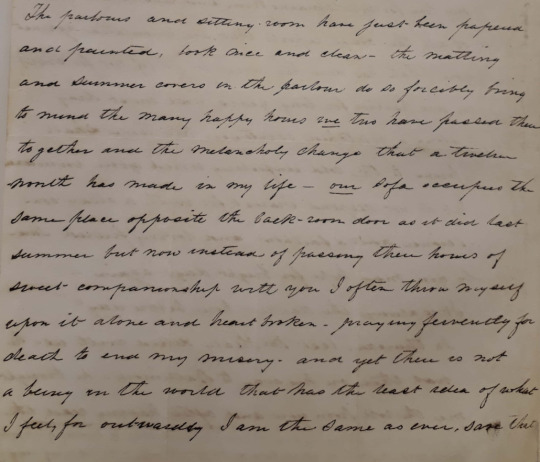 The parlours and sitting-room have just been papered
and painted, look nice and clean – the matting
and summer covers in the parlour do so forcibly bring
to mind the many happy hours we two have passed there
together and the melancholy change that a twelve
month has made in my life – our sofa occupies the
same place opposite the back-room door as it did last
summer but now instead of passing there hours of
sweet companionship with you I often throw myself
upon it alone and heart broken – praying fervently for
death to end my misery – and yet there is not
a being in the world that has the least idea of what
I feel, for outwardly I am the same as ever, save that